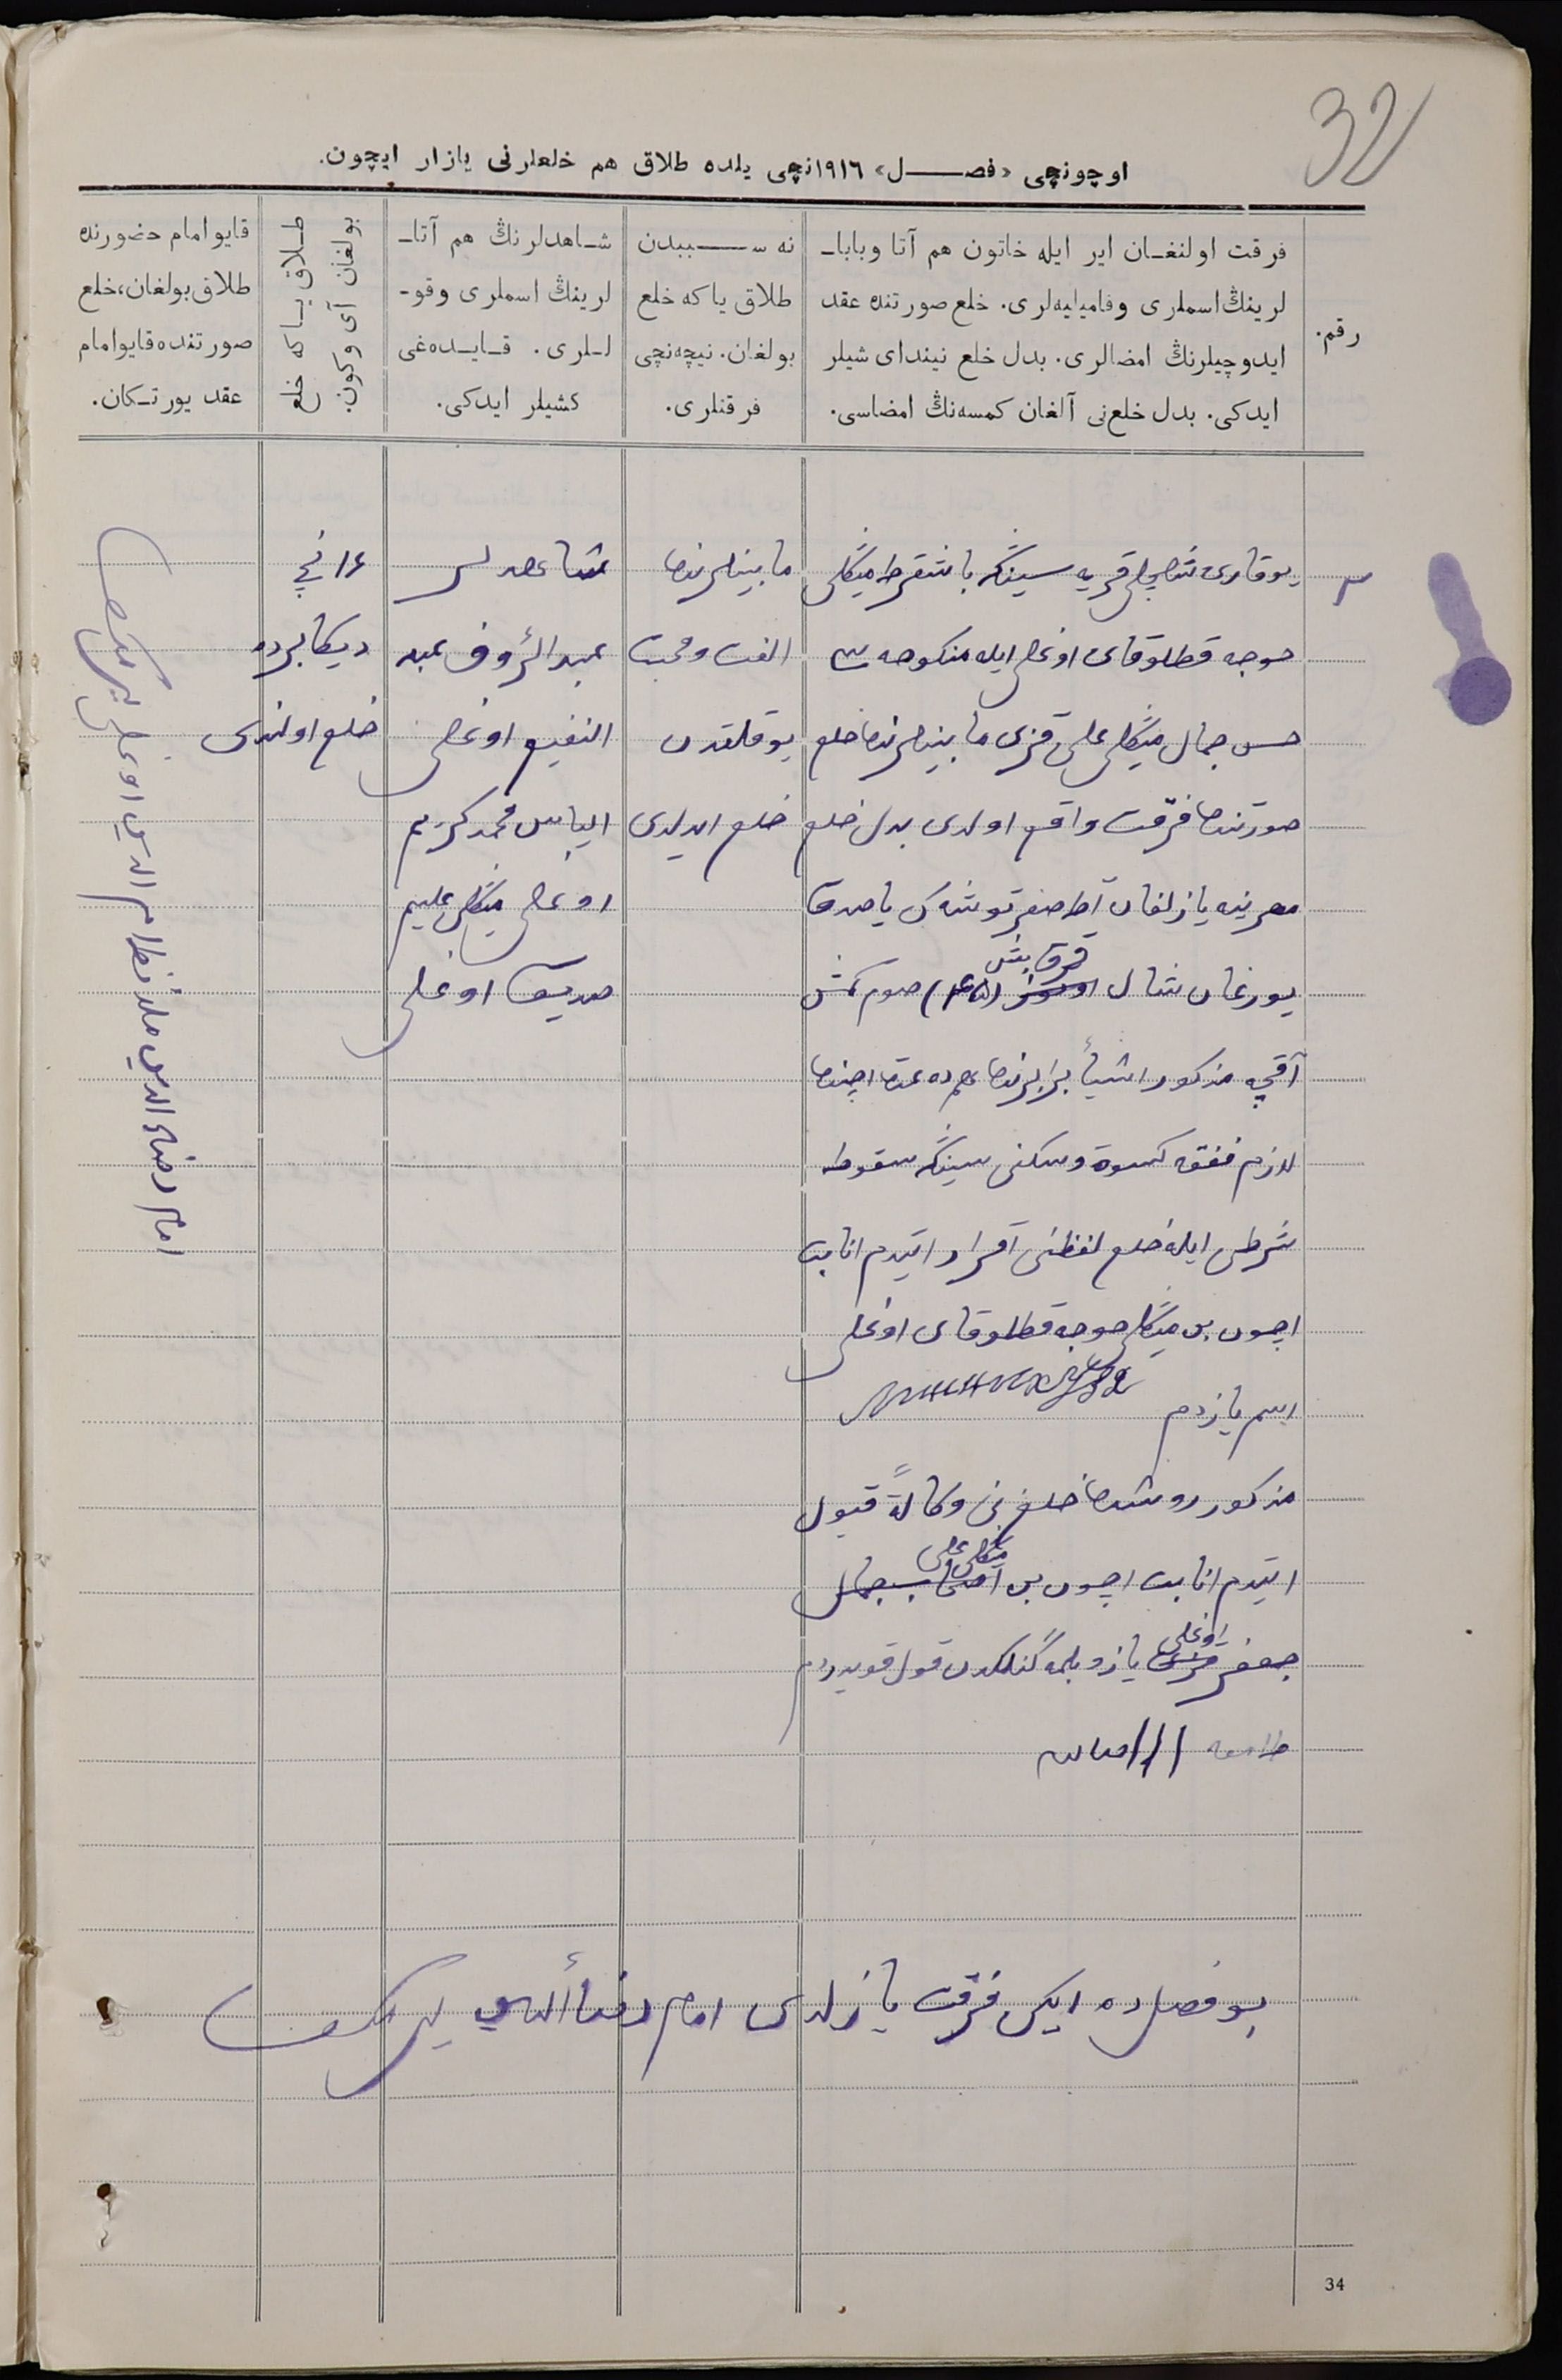 32
اوچونچی «فصــل» ۱۹۱٦نچی یلده طلاق هم خلعلرنی یازار ایچون.
رقم.
فرقت اولنغـان ایر ایله خاتون هم آتا وباباـ
لرینڭ اسملری وفامیلیه‌لری. خلع صورتنده عقد
ایدوچیلرنڭ امضالری. بدل خلع نینداى شیلر
ایدکی. بدل خلع‌نی آلغان کمسه‌نڭ امضاسی.
نه ســببدن
طلاق یاکه خلع
بولغان. نیچه‌نچی
فرقتلری.
شـاهدلرنڭ هم آتاـ
لرینڭ اسملری وقو-
لـلری. قـایـده‌غی
کشیلر ایدکی.
طـلاق یـاکه خلع
بولغان آی وکون.
قایو امام حضورنده
طلاق بولغان، خلع
صورتنده قایو امام
عقد یورتـکان.
یوقاری قریه سینڭ باشقرط میڭلی
خوجه قطلوقای اوغلی ایله منکوحه سی
حسن جمال میڭلی علی قزی مابینلرنده خلع
صورتنده فرقت واقع اولدی بدل خلع
مهرینه یازلغان توشک یاصدق
یورغان شال قرق بش (۴۵) صوم کمش
آقچه مذکور اشیأ برابرنده هم ده عدة اچنده
لازم نفقه کسوة وسکنی سینڭ سقوط
شرطی ایله خلع لفظنی اقرار ایتدم اثابت
اچون بن میڭلی خوجه قطلوقای اوغلی
اسم یازدم
مذکور روشده خلع نی وکالةً قبول
ایتدم اثابت اچون بن میڭلی علی
جعفر اوغلی یازو بلمه گانلکدن قول قویدردم
مابینلرنده
الفت ومحبت
یوقلقدن
خلع ایدلدی
شاهدلر
عبدالرؤف عبد
النفیع اوغلی
الیاس محمدکریم
اوغلی میڭلی علیم
صدیق اوغلی
۱۶نچی
دیکابرده
خلع اولندی
امام رضاء الدین ملا
بو فصل ده ایکی فرقت یازلدی امام رضأالدین
34